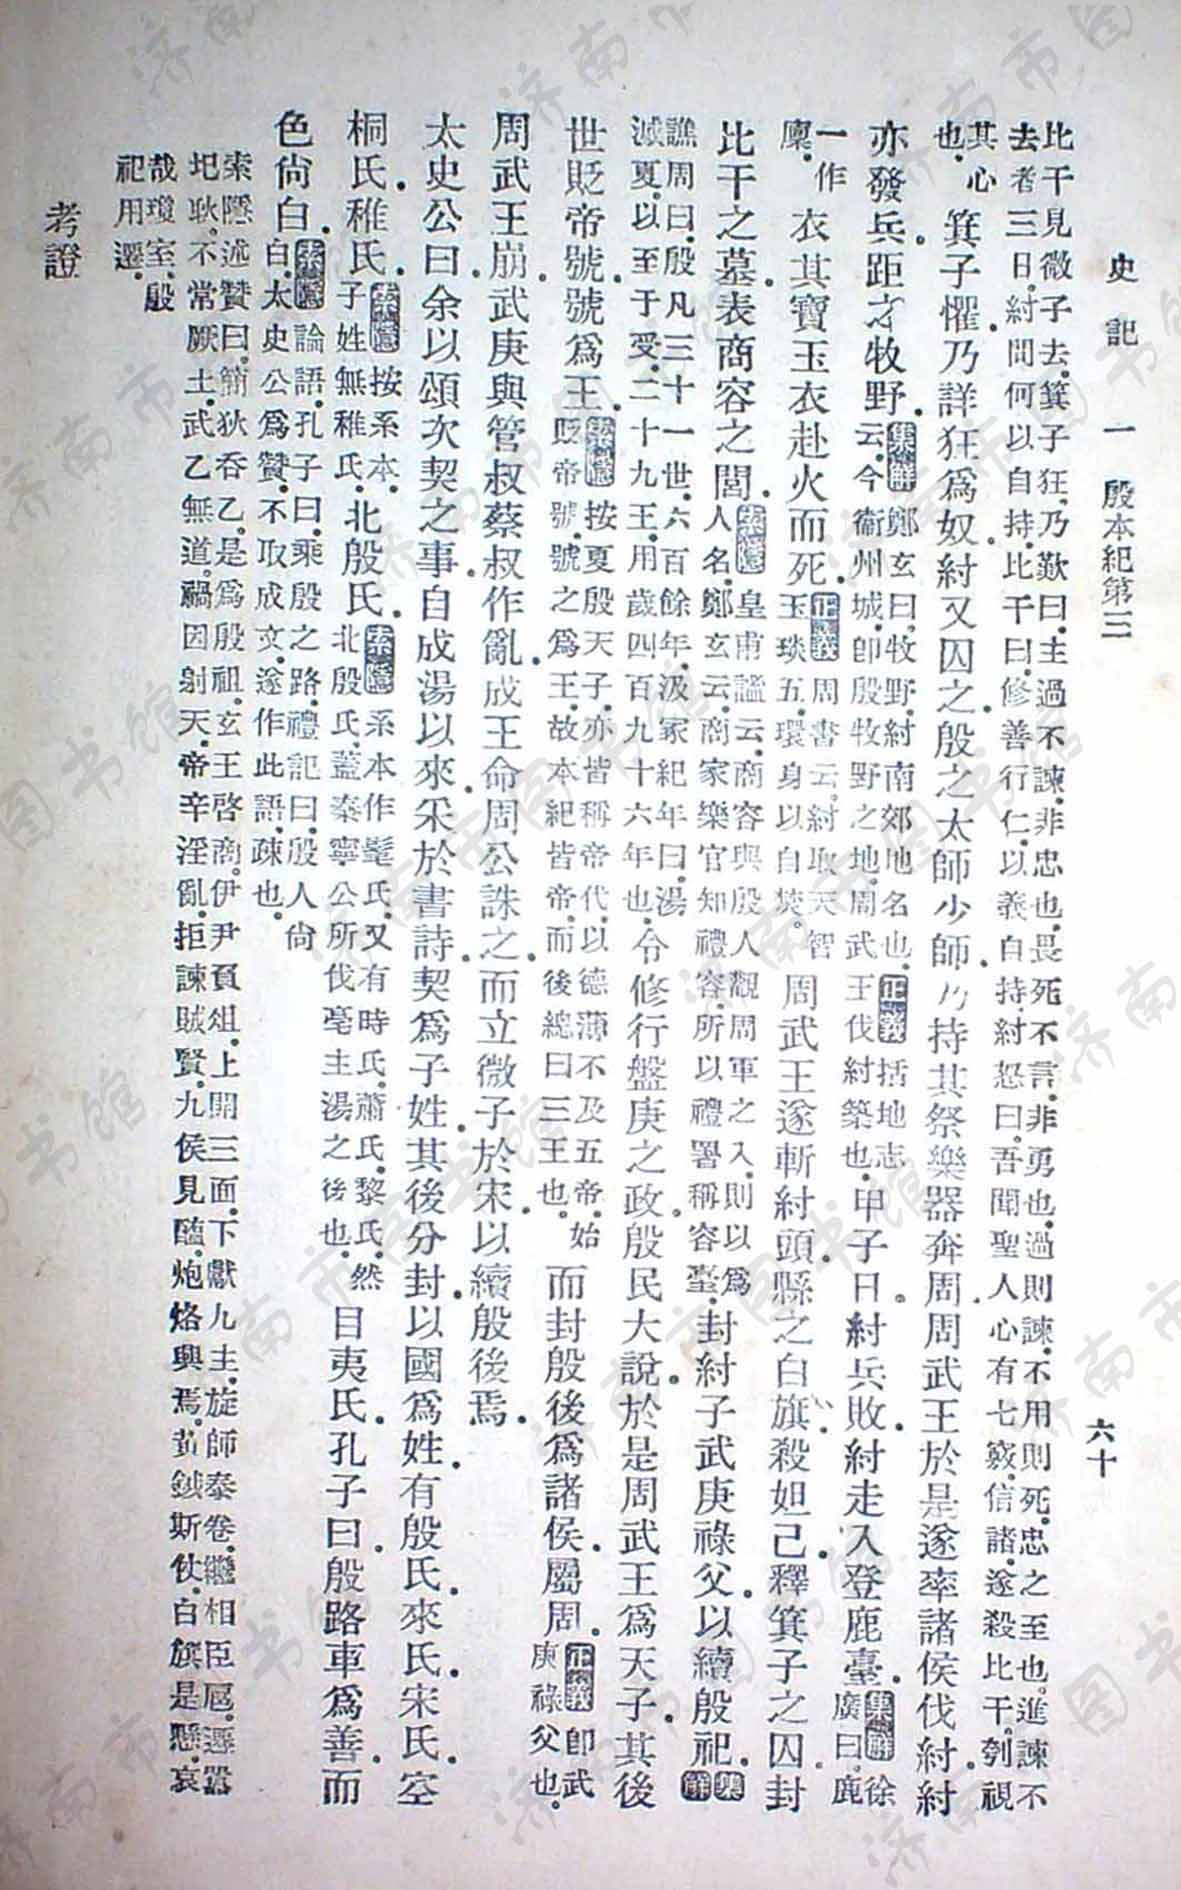 史記 一 殷本紀第三 六十
比干見微子去箕子狂乃歎曰主過不諫非忠也畏死不言非勇也過則諫不用則死忠之至也進諫不
去者三日紂問何以自持比干曰修善行仁以義自持紂怒曰吾聞聖人心有七竅信諸遂殺比干刳視
其心也箕子懼乃詳狂為奴紂又囚之殷之太師少師乃持其祭樂器奔周周武王於是遂率諸侯伐紂紂
亦發兵距之牧野集解鄭玄曰牧野紂南郊地名也正義括地志云今衞州城卽殷牧野之地周武王伐紂築也甲子日紂兵敗紂走入登鹿臺集解徐廣曰鹿
一作廩衣其寶玉衣赴火而死正義周書云紂取天智玉琰五環身以自焚周武王遂斬紂頭縣之白旗殺妲己釋箕子之囚封
比干之墓表商容之閭索隱皇甫謐云商容與殷人觀周軍之入則以為人名鄭玄云商家樂官知禮容所以禮署稱容臺封紂子武庚祿父以續殷祀集解
譙周曰殷凡三十一世六百餘年汲冢紀年曰湯滅夏以至于受二十九王用歲四百九十六年也令修行盤庚之政殷民大說於是周武王為天子其後
世貶帝號號為王索隱按夏殷天子亦皆稱帝代以德薄不及五帝始貶帝號號之為王故本紀皆帝而後總曰三王也而封殷後為諸侯屬周正義卽武庚祿父也
周武王崩武庚與管叔蔡叔作亂成王命周公誅之而立微子於宋以續殷後焉
太史公曰余以頌次契之事自成湯以來采於書詩契為子姓其後分封以國為姓有殷氏來氏宋氏空
桐氏稚氏索隱按系本子姓無稚氏北殷氏索隱系本作髦氏又有時氏蕭氏黎氏然北殷氏蓋秦寧公所伐亳主湯之後也目夷氏孔子曰殷路車為善而
色尚白索隱論語孔子曰乘殷之路禮記曰殷人尚白太史公為贊不取成文遂作此語疎也
索隱述贊曰簡狄吞乙是為殷祖玄王啓商伊尹負俎上開三面下獻九主旋師泰卷繼相臣扈遷囂
圯耿不常厥土武乙無道禍因射天帝辛淫亂拒諫賊賢九侯見醢炮烙興焉黃鉞斯仗白旗是懸哀
哉瓊室殷祀用遷
考證